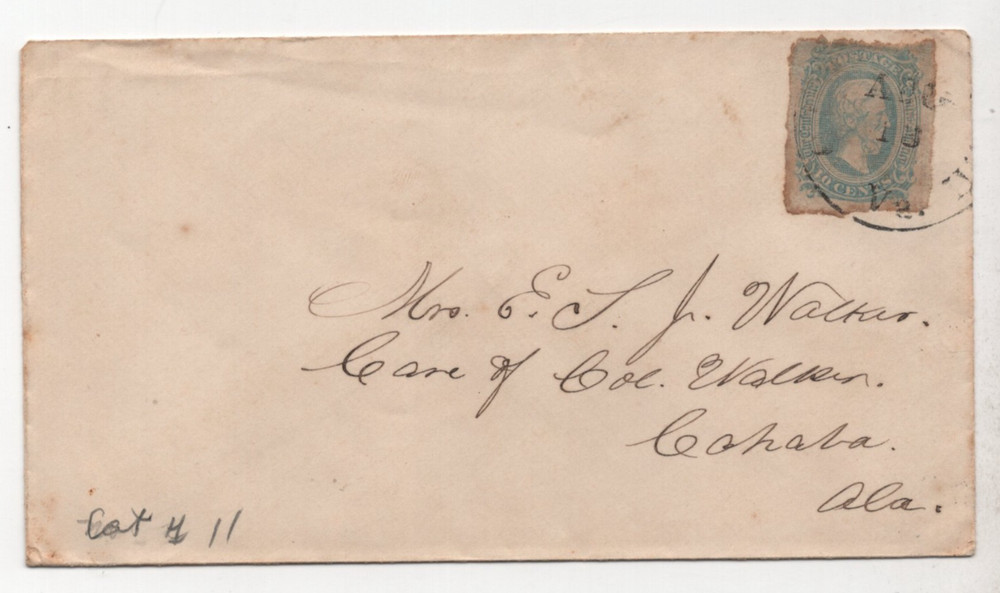 POSTAGE
TEN CENTS
APG
Va.
Mrs. E. S. J. Walker.
Care of Col. Walker.
Cahaba.
Ala.
Cat # 11